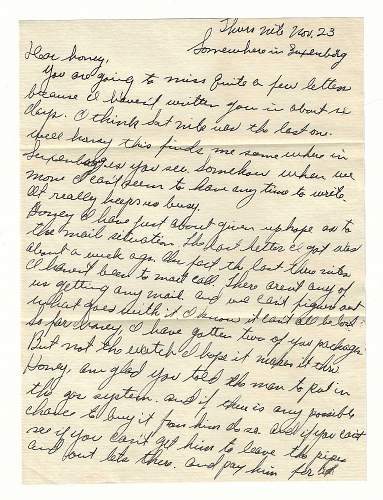 Thurs nite Nov. 23
Somewhere in Luxenburg
Dear honey,
You are going to miss quite a few letters
because I haven't written you in about six
days. I think Sat nite was the last one.
well honey this finds me somewhere in
Luxenburg as you see. Somehow when we
move I can't seem to have any time to write.
It really keeps us busy.
Honey I have just about given up hope as to
the mail situation. The last letter I got was
about a week ago. In fact the last three nites
I haven't been to mail call. There aren't any of
us getting any mail. and we can't figure out
what goes with it. I know it can't all be lost.
so far honey, I have gotten two of your packages.
But not the watch I hope it makes it thru
Honey am glad you told the man to put in
the gas system. and if there is any possible
chance to buy it from him do so. and if you can't
see if you can't get him to leave the pipes
and out lets there. and pay him for